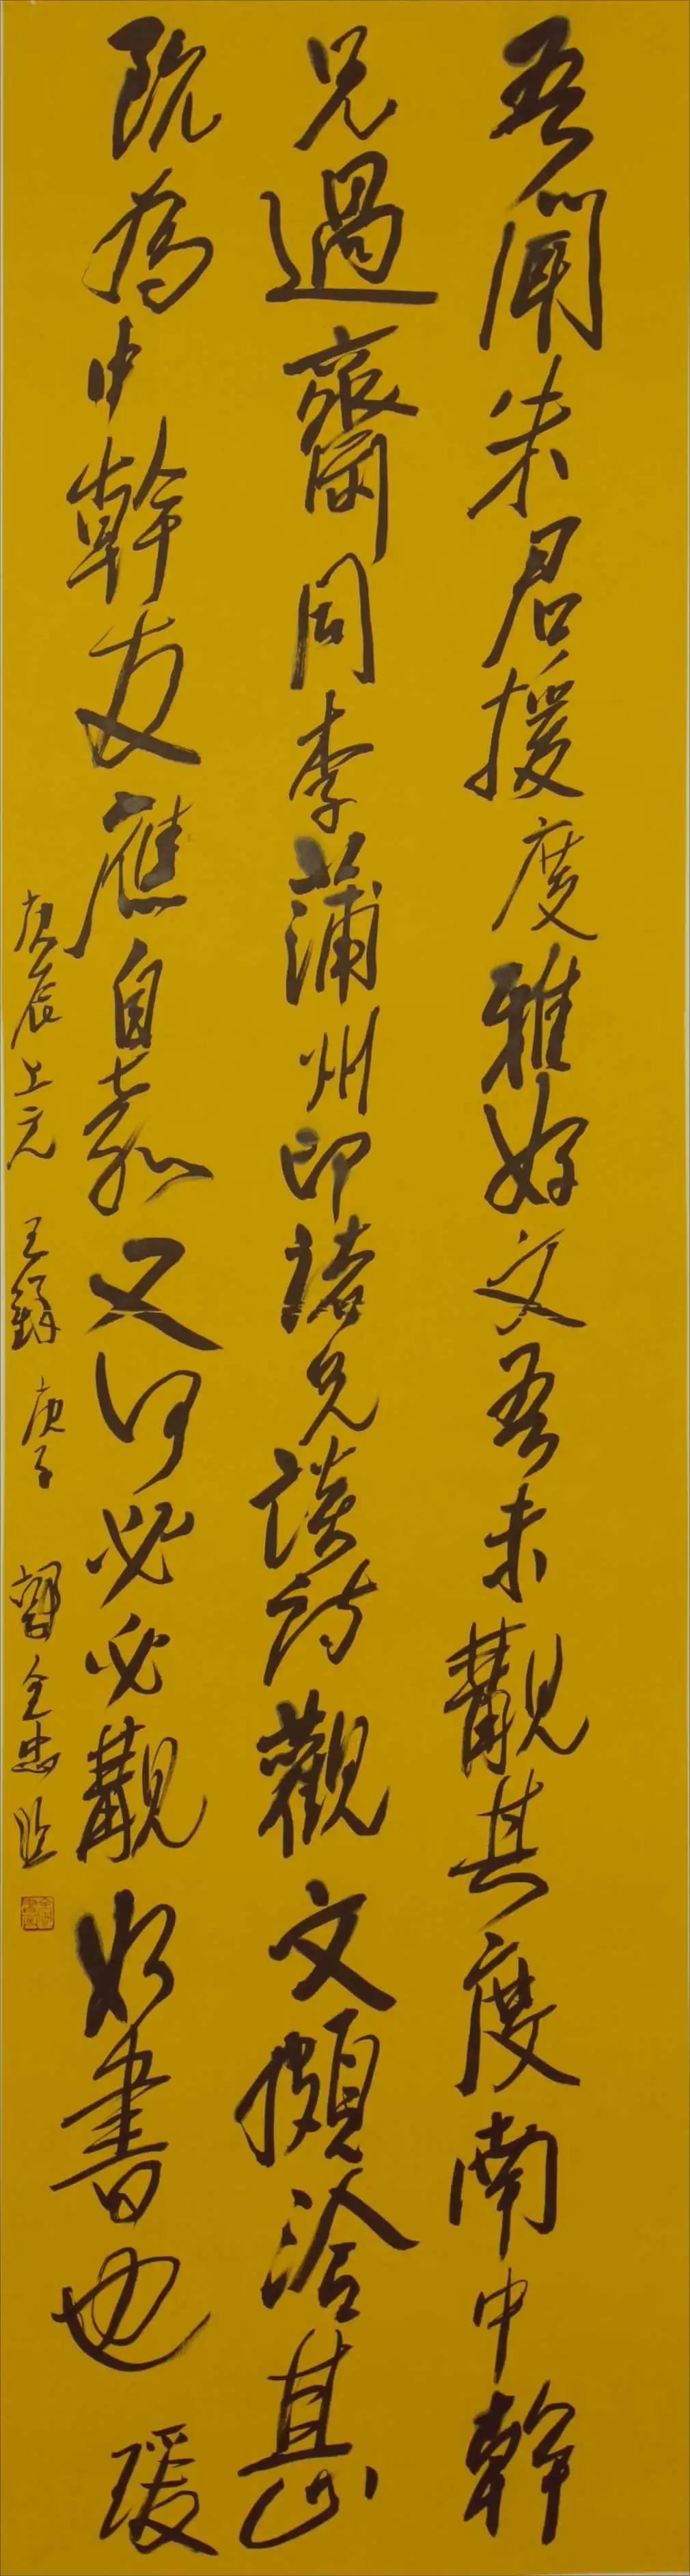 吾聞朱君援度雅好文吾未覯其度南中幹
兄過齋同李蒲州即諸兄談詩觀文頗洽甚
既為中幹友應自嘉又何必必覯如書也瑗
庚辰上元 王鐸 庚子 全忠臨